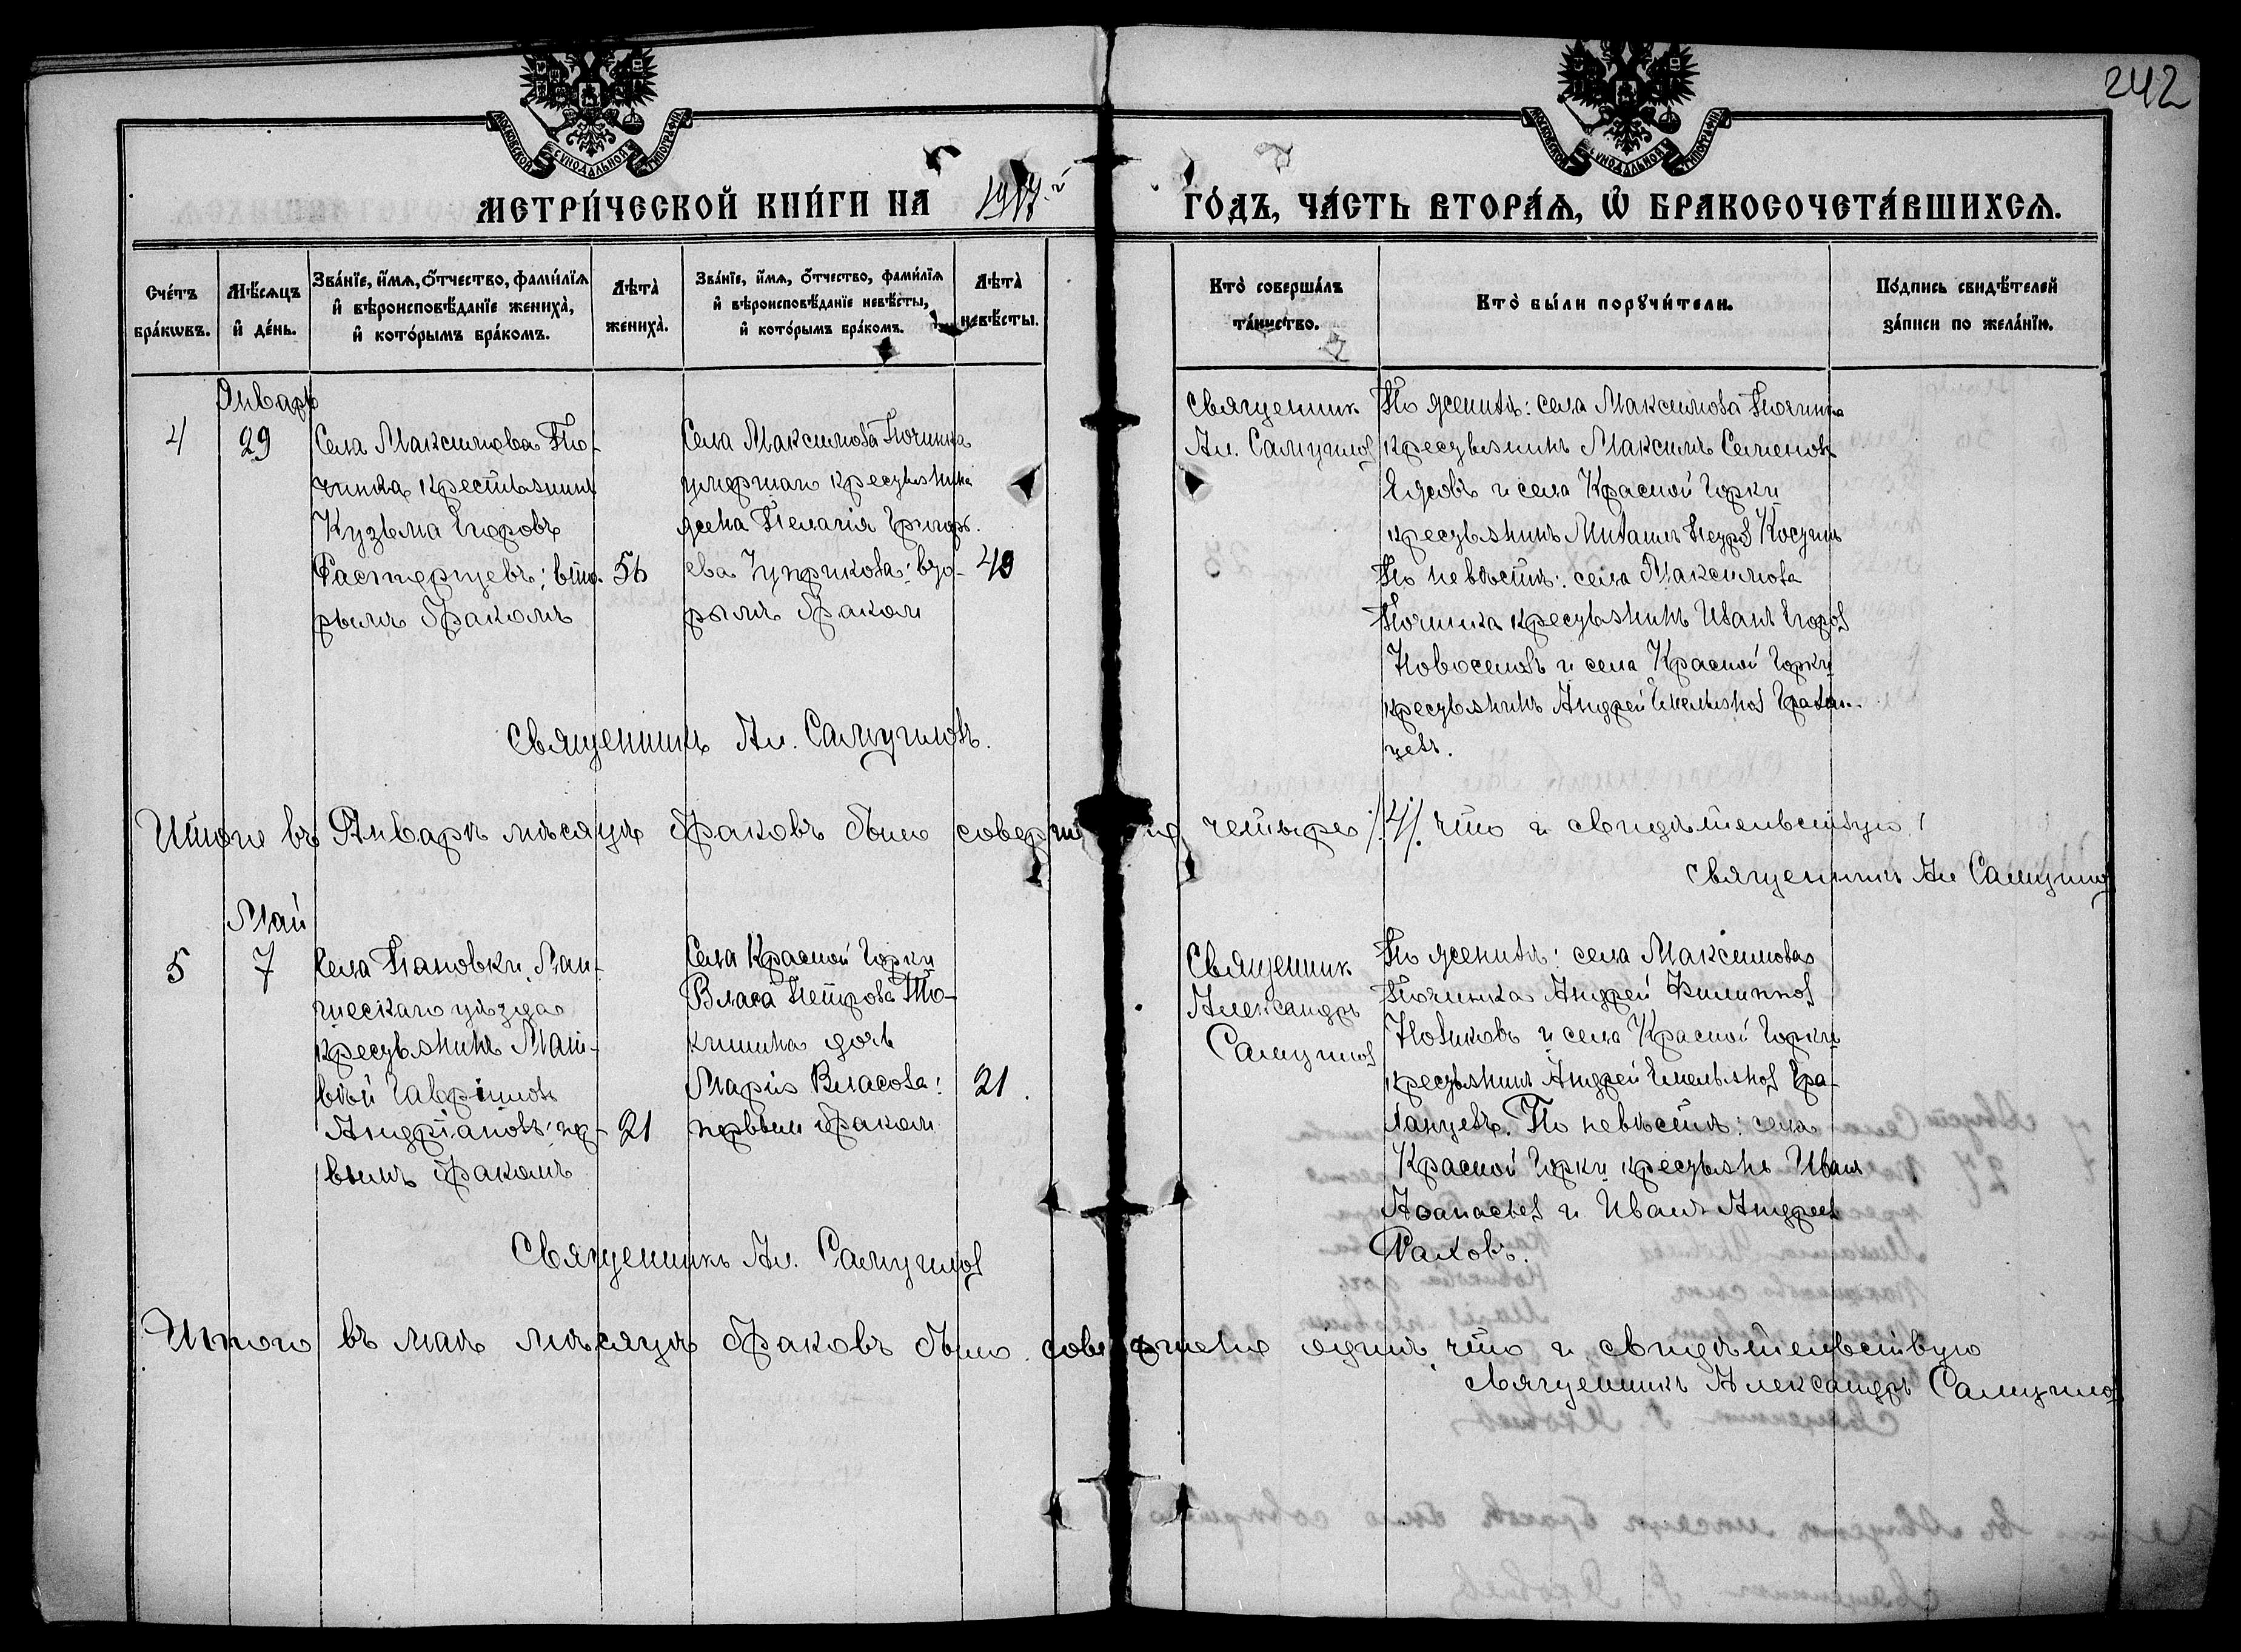 242
МОСКОВСКОЙ СѴНОДАЛЬНОЙ ТИПОГРАФІИ
МОСКОВСКОЙ СѴНОДАЛЬНОЙ ТИПОГРАФІИ
МЕТРИ́ЧЕСКОЙ КНИ́ГИ НА 1917 й ГО́ДЪ, ЧА́СТЬ ВТОРА́Ѧ, Ѡ҆ БРАКОСОЧЕТА́ВШИХСѦ.
Сче́тъ бра́кѡвъ.
Мѣ́сѧцъ и҆ де́нь.
Зва́нїе, и҆́мѧ, ѻ҆́тчество, фами́лїѧ и҆ вѣроисповѣ́данїе жениха̀, и҆ кото́рымъ бра́комъ.
Лѣ́та̀ жениха̀.
Зва́нїе, и҆́мѧ, ѻ҆́тчество, фами́лїѧ и҆ вѣроисповѣ́данїе невѣ́сты, и҆ кото́рымъ бра́комъ.
Лѣ́та̀ невѣ́сты.
Кто̀ соверша́лъ та́инство.
Кто̀ бы́ли порꙋчи́тели.
По́дпись свидѣ́телей за́писи по жела́нїю.
Январь
4
29
Села Максимова По-
чинка крестьянинъ
Кузьма Егоровъ
Растѣряевъ; вто-
рымъ бракомъ
56
Села Максимова Починка
умершаго крестьянина
жена Пелагія Григорь-
ева Чуприкова: вто-
рымъ браком
Священник
Ал. Самуилов
По женихѣ: села Максимова Починка
крестьянинъ Максимъ Семеновъ
Ежовъ и села Красной Горки
крестьянинъ Михаилъ Петров Костинъ
По невѣстѣ: села Максимова
Починка крестьянинъ Иванъ Егоров
Новоселовъ и села Красной Горки
крестьянинъ Андрей Емельянов
Священникъ Ал. Самуиловъ.
Итого въ Январѣ мѣсяцѣ браковъ было совершено четыре /4/. что и свидѣтельствую
Священникъ Ал Самуилов
Май
5
7
Села Пановки, Лаи-
шескаго уѣзда
крестьянинъ Мат-
вѣй Гавріиловъ
Андріановъ: пер-
вымъ бракомъ
21
Села Красной Горки
Власа Петрова То-
кшина дочь
Марія Власова:
первым браком
21.
Священник
Александръ
Самуилов
По женихѣ: села Максимова
Починка Андрей Филиппов
Новиковъ и села Красной Горки
крестьянин Андрей Емельянов
По невѣстѣ: села
Красной Горки крестьянъ Иван
Аѳанасьев и Иванъ Андреев
Священникъ Ал. Самуилов
Итого въ маѣ мѣсяцѣ браковъ было совершено одинъ что и свидѣтельствую
Священникъ Александръ Самуилов